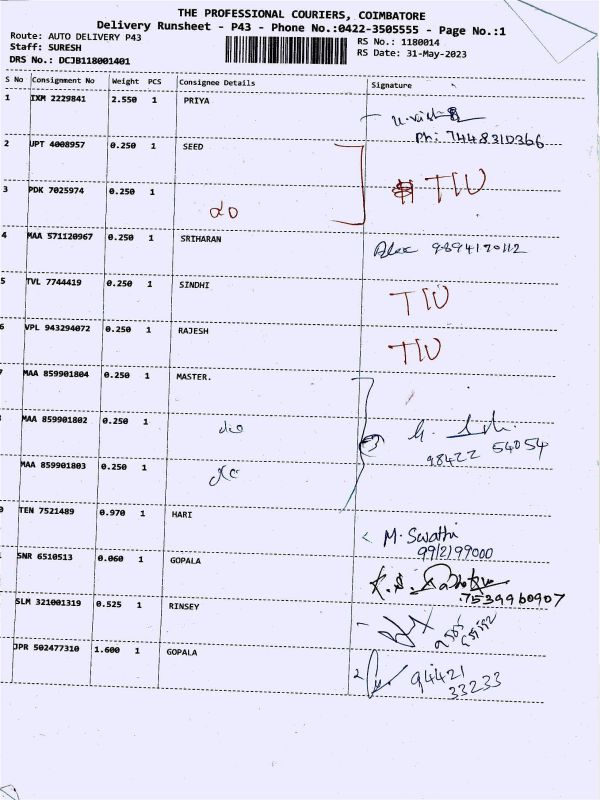 THE PROFESSIONAL COURIERS, COIMBATORE
Delivery Runsheet - P43 - Phone No.:0422-3505555 - Page No.:1
Route: AUTO DELIVERY P43
RS No.: 1180014
Staff: SURESH
RS Date: 31-May-2023
DRS No.: DCJB118001401
S No Consignment No Weight PCS Consignee Details Signature
1 IXM 2229841 2.550 1 PRIYA
Ph: 7448310366
2 UPT 4008957 0.250 1 SEED
TIU
3 PDK 7025974 0.250 1
do
4 MAA 571120967 0.250 1 SRIHARAN
9894170112
5 TVL 7744419 0.250 1 SINDHI
TIU
6 VPL 943294072 0.250 1 RAJESH
TIU
7 MAA 859901804 0.250 1 MASTER.
MAA 859901802 0.250 1
do
98422 54054
MAA 859901803 0.250 1
do
0 TEN 7521489 0.970 1 HARI
M. Swathi
9912199000
SNR 6510513 0.060 1 GOPALA
7539960907
SLM 321001319 0.525 1 RINSEY
JPR 502477310 1.600 1 GOPALA
94421
33233